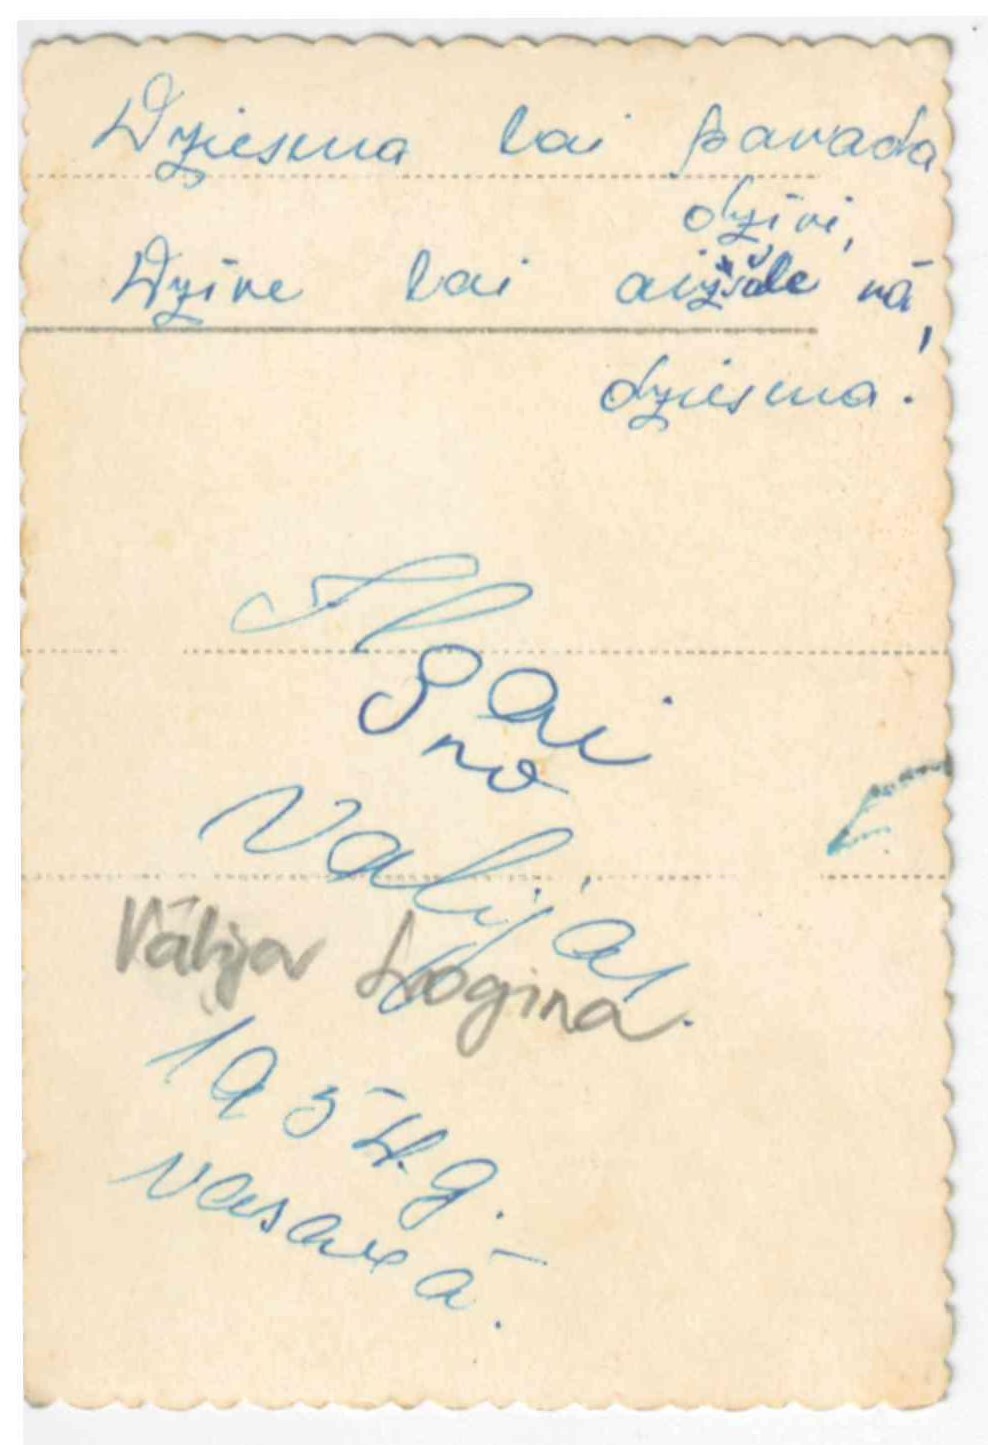 Dziesma lai pavada
dzīvi,
Dzīve lai aizšalc kā,
dziesma.
no
Valijas.
Vālija Logina.
1954.g.
vasarā.